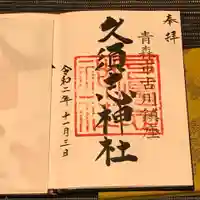 奉拝
青森市古川鎮座
久須志神社
令和二年十一月三日